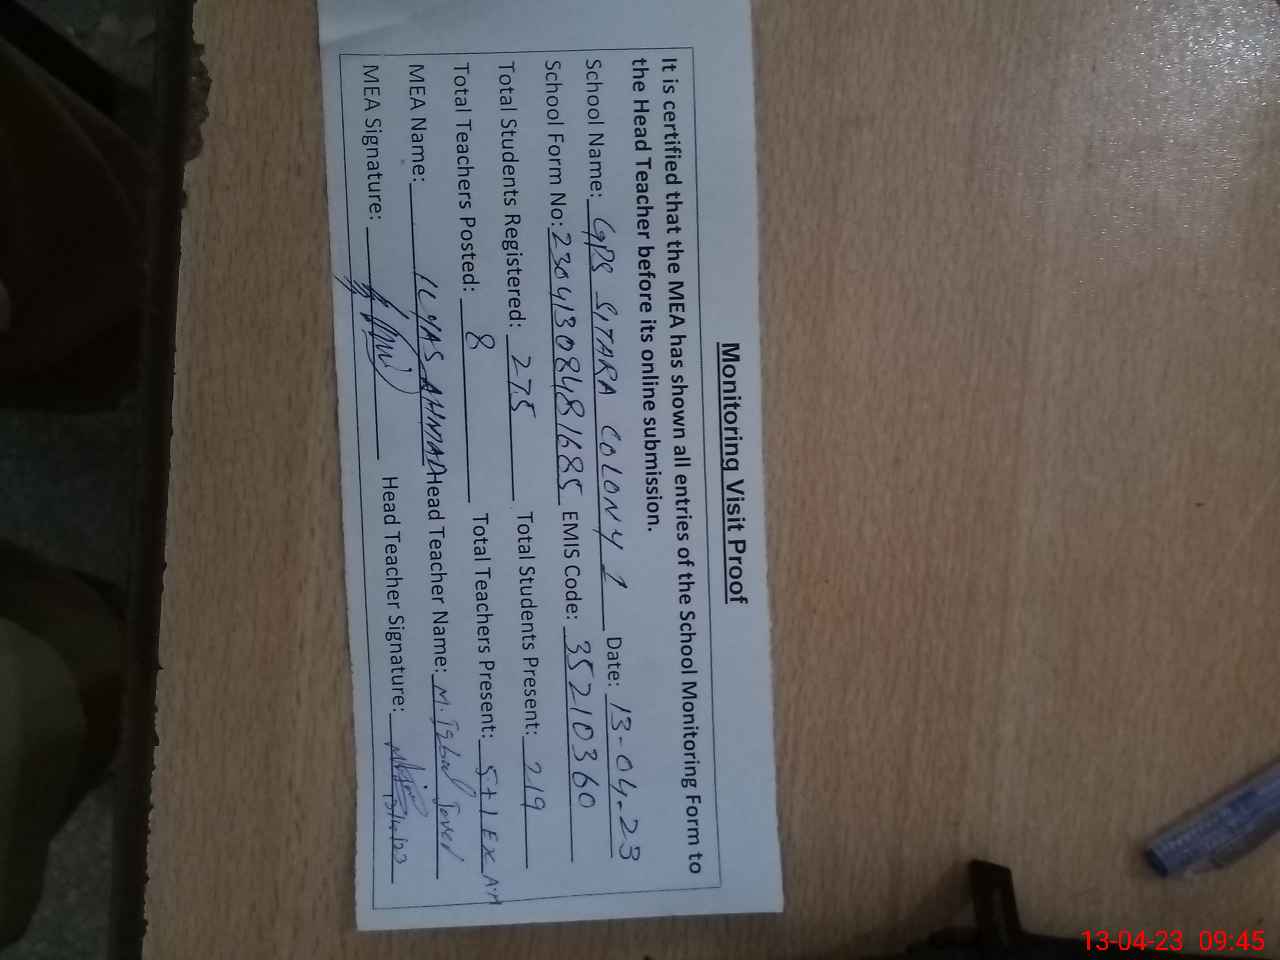 Monitoring Visit Proof
It is certified that the MEA has shown all entries of the School Monitoring Form to
the Head Teacher before its online submission.
School Name: GPS SITARA COLONY 1 Date: 13-04-23
School Form No: 23041308481685 EMIS Code: 35210360
Total Students Registered: 275 Total Students Present: 219
Total Teachers Posted: 8 Total Teachers Present: 5+1 EX
MEA Name: ILYAS AHMAD Head Teacher Name: M. Iqbal
MEA Signature: Head Teacher Signature:
13-04-23 09:45